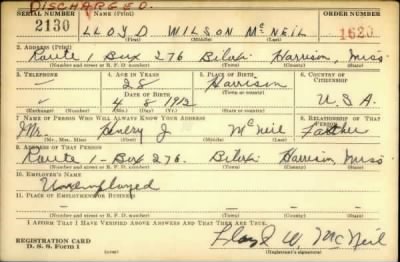 DISCHARGED.
SERIAL NUMBER 1. NAME (Print) ORDER NUMBER
2130 LLOYD WILSON McNEIL 1620
(First) (Middle) (Last)
2. ADDRESS (Print)
Route 1 Box 276 Biloxi Harrison, Miss
(Number and street or R. F. D. number) (Town) (County) (State)
3. TELEPHONE 4. AGE IN YEARS 5. PLACE OF BIRTH 6. COUNTRY OF CITIZENSHIP
28 Harrison
DATE OF BIRTH
4 8 1912 U.S.A.
(Exchange) (Number) (Mo.) (Day) (Yr.) (State or country)
7. NAME OF PERSON WHO WILL ALWAYS KNOW YOUR ADDRESS 8. RELATIONSHIP OF THAT PERSON
Mr. Henry J McNeil Father
(Mr., Mrs., Miss) (First) (Middle) (Last)
9. ADDRESS OF THAT PERSON
Route 1 - Box 276. Biloxi Harrison Miss
(Number and street or R. F. D. number) (Town) (County) (State)
10. EMPLOYER'S NAME
Unemployed
11. PLACE OF EMPLOYMENT OR BUSINESS
(Number and street or R. F. D. number) (Town) (County) (State)
I AFFIRM THAT I HAVE VERIFIED ABOVE ANSWERS AND THAT THEY ARE TRUE.
REGISTRATION CARD
D. S. S. Form 1
Lloyd W. McNeil
(Registrant's signature)